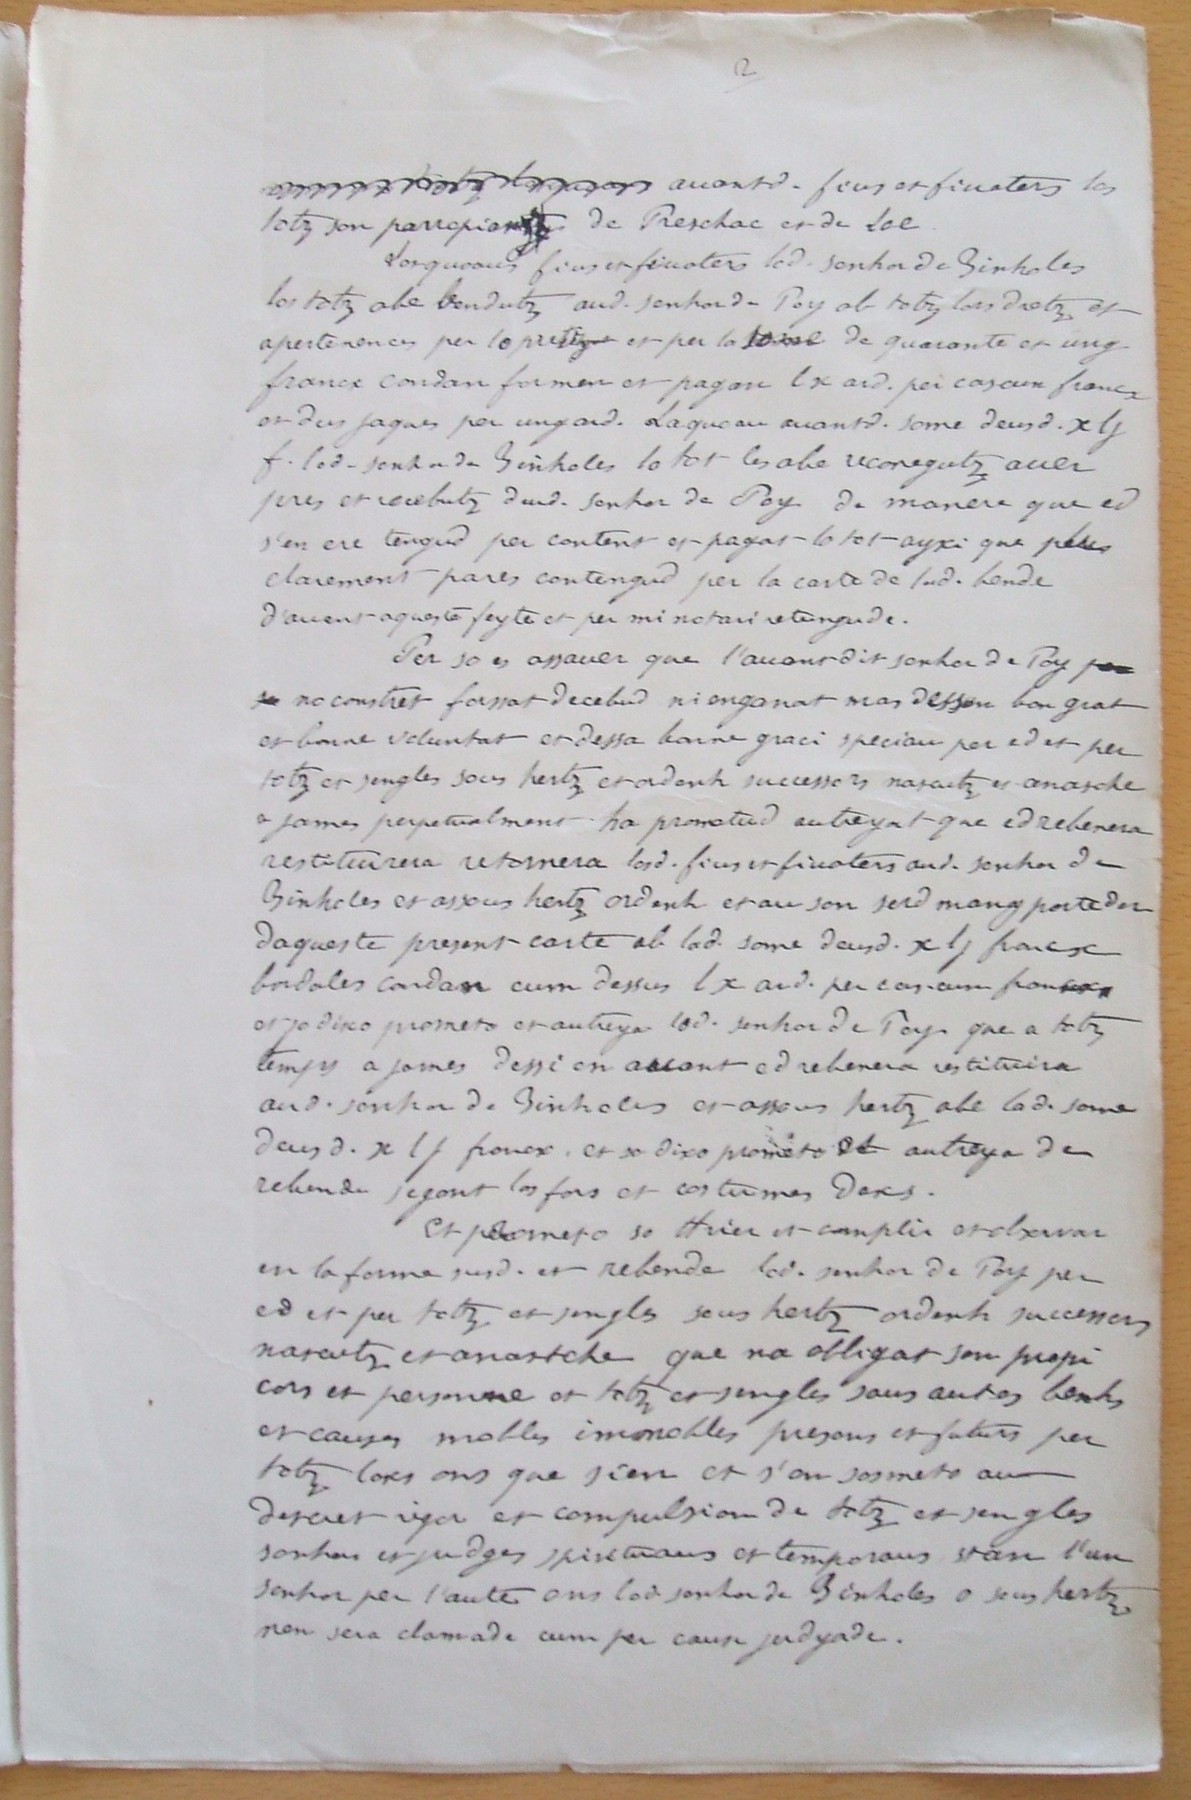 2
auantd. fius et fiuaters los
totz son parropiantz de Preschac et de Loe
Losquoaus fius et fiuaters lod. senhor de Binholes
los totz abe bendutz aud. senhor de Poy ab totz lors dretz et
apertenences per lo pretz et per la some de quarante et ung
francx condan formen et pagan lx ard. per cascun francx
et dus jaques per ung ard. Laquoau auantd. some deusd. xlj
f. lod. senhor de Binholes lo tot les abe reconegutz auer
pres et recebutz deud. senhor de Poy de manere que ed
s'en ere tengud per content et pagat lo tot ayxi que plus
clarement pares contengud per la carte de lad. bende
d'auent aqueste feyte et per mi notari retengude.
Per so es assauer que l'auantdit senhor de Poy
no constret forssat decebud ni enganat mas desson bon grat
et bonne voluntat et dessa bonne graci speciau per ed et per
totz et sengles sous hertz et ordenh successors nascutz et anasche
a james perpetualment ha prometud autreyat que ed rebenera
restituira retornera losd. fius et fiuaters aud. senhor de
Binholes et assous hertz ordenh et au son serd mang portedor
daqueste present carte ab lad. some deusd. xlj francx
bordales condan cum dessus lx ard. per cascun francx
et so dixo prometo et autreya lod. senhor de Poy que a totz
temps a james dessi en auant ed rebenera restituira
aud. senhor de Binholes et assous hertz abe lad. some
deusd. xlj francx. et so dixo prometo et autreya de
rebende segont los fors et costumes Daxs.
Et prometo so thier et complir et obseruar
en la forme susd. et rebende lod. senhor de Poy per
ed et per totz et sengles sous hertz ordenh successors
nascutz et anastche que na obligat son propi
cors et personne et totz et sengles sous autes benhs
et causes mobles immobles presens et futurs per
totz locxs ons que sien et s'en sosmeto au
destret rigor et compulsion de totz et sengles
senhors et judges spirituaus et temporaus stan l'un
senhor per l'aute ons lod. senhor de Binholes o sous hertz
nen sera clamade cum per cause judyade.